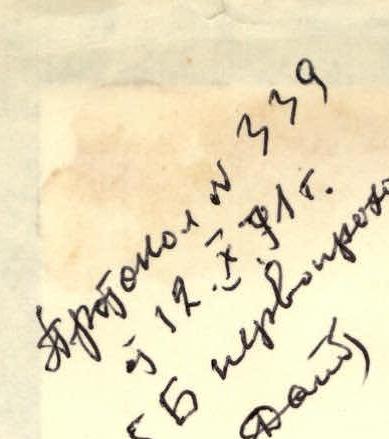 Протокол № 339
от 12.IX.71 г.
Б первопрохо